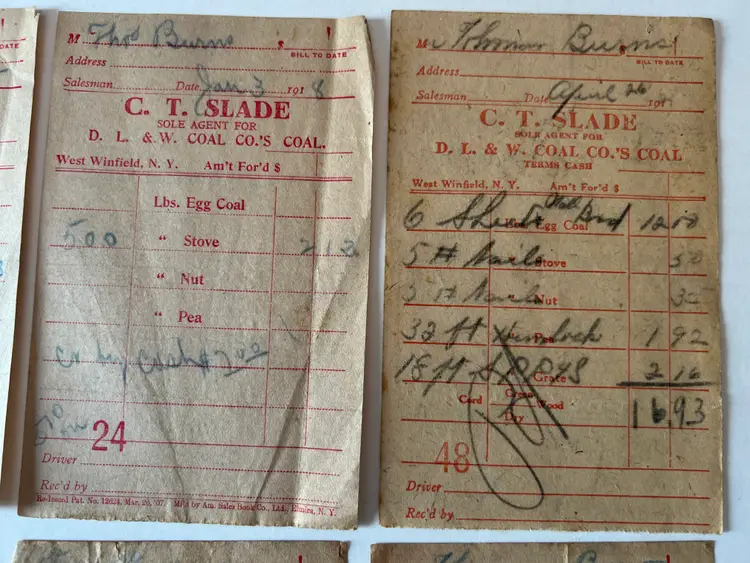 M Thos Burns $
BILL TO DATE
Address
Salesman Date Jan 3 191 8
C. T. SLADE
SOLE AGENT FOR
D. L. & W. COAL CO.'S COAL.
West Winfield, N. Y. Am't For'd $
Lbs. Egg Coal
500 " Stove 2 13
" Nut
" Pea
24
Driver
Rec'd by
Re-Issued Pat. No. 12624, Mar. 26, '07. M'f'd by Am. Sales Book Co., Ltd., Elmira, N. Y.
M Burns
BILL TO DATE
Address
Salesman Date April 26 191
C. T. SLADE
SOLE AGENT FOR
D. L. & W. COAL CO.'S COAL
TERMS CASH
West Winfield, N. Y. Am't For'd $
6 Sheets Brd Egg Coal 12 00
5 # Nails Stove 50
5 # Nails Nut 35
32 ft Hemlock Pea 1 92
18 ft Grate 2 16
Cord Green Wood 16.93
Dry
48
Driver
Rec'd by